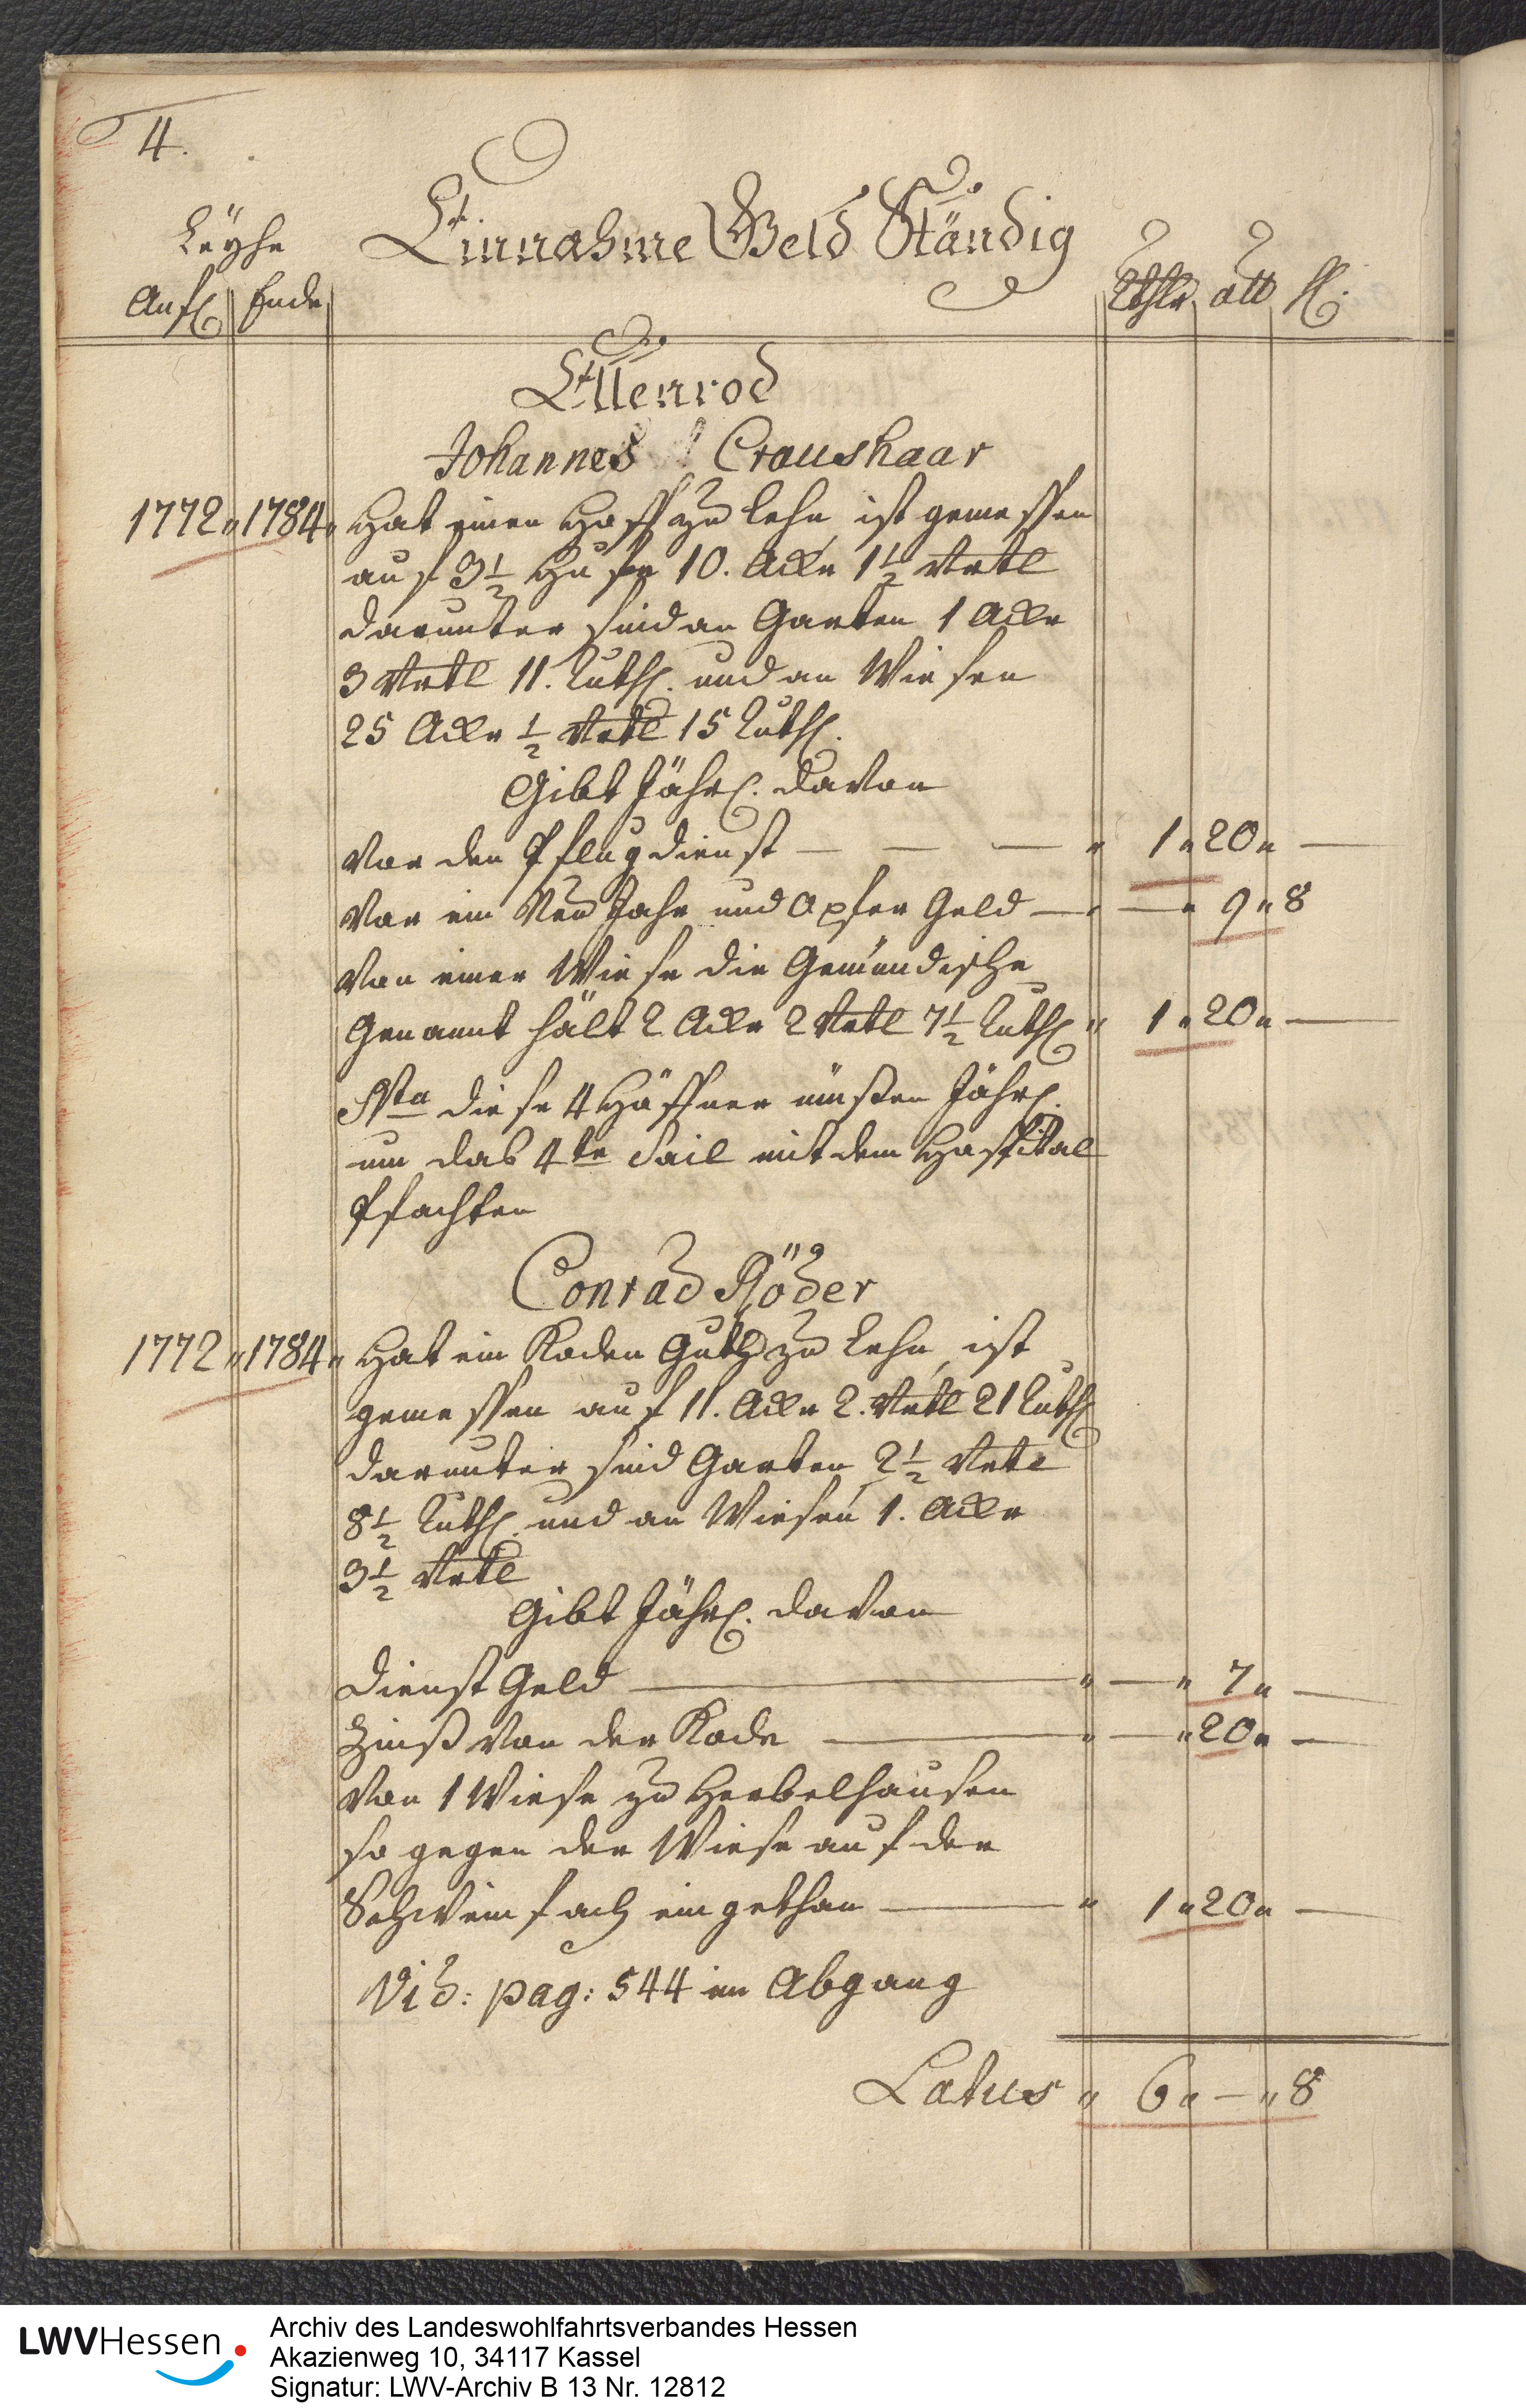 4.
Einnahme Geld Ständig
Leyhe
Anf. Ende
Rthlr alb hl.
Ellenrod
Johannes Craushaar
1772 " 1784 " Hat einen Hoff zu Lehn, ist gemessen
auf 3 1/2 Hufe 10. Acker 1 1/2 Vrtl
darunter sind an Garten 1 Acker
3 Vrtl 11. Ruth. und an Wiesen
25 Acker 1/2 Vrtl 15 Ruth.
Gibt Jährl. davon
Vor den Pflugdienst — — — " 1 " 20 " —
Vor ein Neu Jahr und Opfer Geld — " — " 9 " 8
Von einer Wiese die Gemündische
Genannt hält 2 Acker 2 Vrtl 7 1/2 Ruth " 1 " 20 " —
Nta diese 4 Höffner müßen Jährl.
um das 4te Tail mit dem Hospital
Pfachten
Conrad Röder
1772 " 1784 " Hat ein Koden Guth zu Lehn, ist
gemessen auf 11. Acker 2. Vrtl 21 Ruth
darunter sind Garten 2 1/2 Vrtl
8 1/2 Ruth. und an Wiesen 1. Acker
3 1/2 Vrtl
Gibt Jährl. davon
Dienst Geld — " — " 7 " —
Zinß von der Kode — " — " 20 " —
Von 1 Wiese zu Herbelhausen
so gegen der Wiese auf der
eingethan — " 1 " 20 " —
Vid: pag: 544 im Abgang
Latus " 6 " — " 8
LWVHessen
Archiv des Landeswohlfahrtsverbandes Hessen
Akazienweg 10, 34117 Kassel
Signatur: LWV-Archiv B 13 Nr. 12812